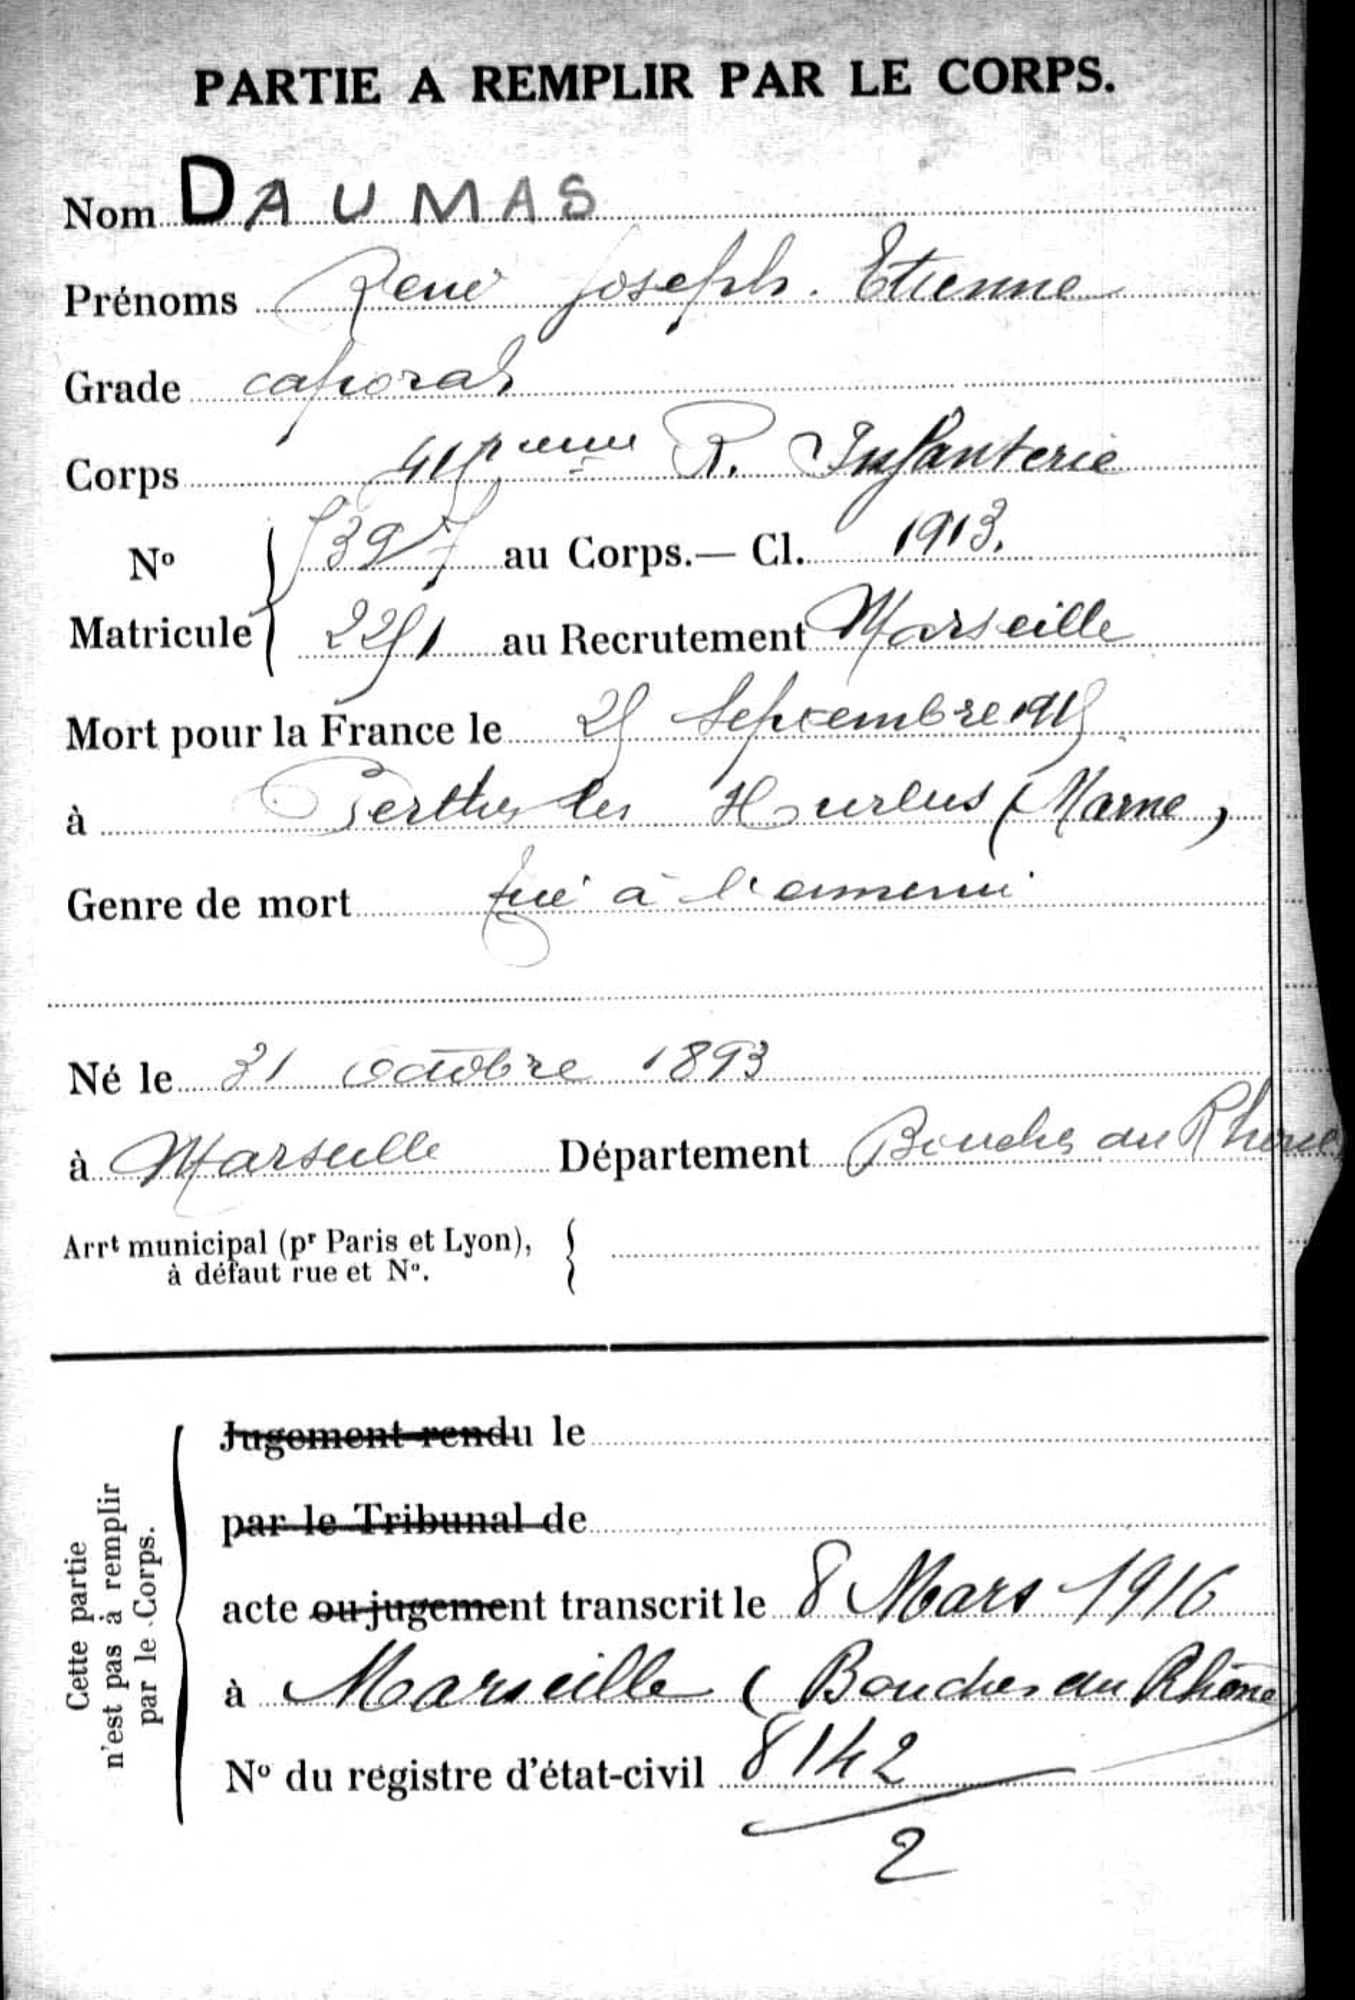 PARTIE A REMPLIR PAR LE CORPS.
Nom DAUMAS
Prénoms René Joseph. Etienne
Grade caporal
Corps 415eme R. Infanterie
No Matricule { 5397 au Corps.— Cl. 1913.
2251 au Recrutement Marseille
Mort pour la France le 25 Septembre 1915
à Perthes les Hurlus (Marne)
Genre de mort tué à l'ennemi
Né le 31 octobre 1893
à Marseille Département Bouches du Rhône
Arrt municipal (pr Paris et Lyon),
à défaut rue et No.
Cette partie
n'est pas à remplir
par le Corps.
Jugement rendu le
par le Tribunal de
acte ou jugement transcrit le 8 Mars 1916
à Marseille (Bouches du Rhône)
No du registre d'état-civil 8142
2